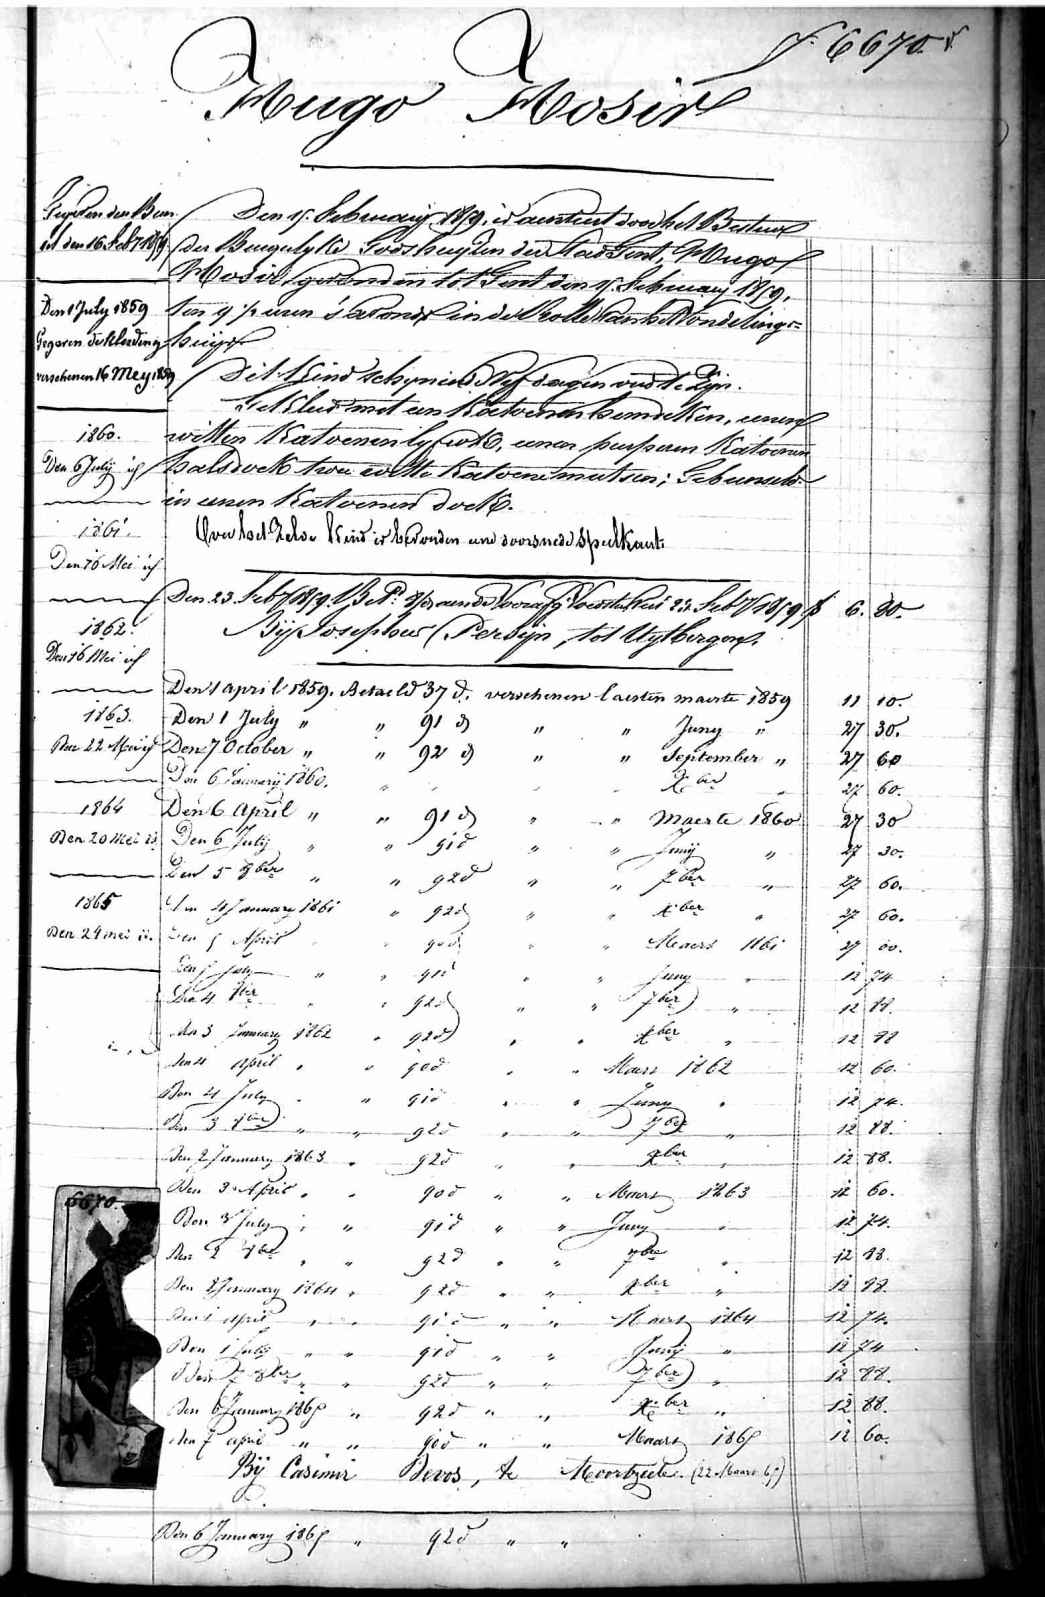 f. 6670
Hugo Hosir
Gegeven den Bam
16 Feby 1859
Den 1 July 1859
Gegeven de kleeding
verschenen 16 Mey 1859
1860.
Den 6 July id
1861.
Den 16 Mei id
1862.
Den 16 Mei id
1863.
Den 22 Mei id
1864
Den 20 Mei id
1865
Den 24 mei id.
Den 15 February 1859, is aenveert door het Bestuer
der Burgerlyke Godshuyzen der Stad Gent, Hugo
Hosir, gevonden tot Gent den 15 February 1859,
ten 9 ½ uren s'avonds in de Rolle van het Vondelings-
huys.
Dit Kind schynende vyf dagen oud te zyn.
Gekleed met een Katoenen hemdeken, eenen
witten Katoenen lyfrok, eenen purperen Katoenen
halsdoek twee witte Katoene mutsen; Gebunseld
in eenen Katoenen doek.
Over het zelve Kind is bevonden eene doorsnede speelkaart.
Den 23 Feby 1859 23 Feby 1859 f 6. 30.
Bij Josephus Persijn, tot Uytbergen.
Den 1 april 1859. Betaeld 37 d. verschenen laesten maerte 1859 11 10.
Den 1 July " " 91 d " " Juny " 27 30.
Den 7 October " " 92 d " " September " 27 60
Den 6 January 1860. " " " " Xber " 27 60.
Den 6 April " " 91 d " " Maerte 1860 27 30
Den 6 July " " 91 d " " Junij " 27 30.
Den 5 8ber " " 92 d " " 7ber " 27 60.
Den 4 January 1861 " 92 d " " Xber " 27 60.
Den 5 April " " 90 d " " Maers 1861 27 00.
Den 5 July " " 91 d " " Juny " 12 74.
Den 4 8ber " " 92 d " " 7ber " 12 88.
Den 3 January 1862 " 92 d " " Xber " 12 88
Den 4 April " " 90 d " " Maers 1862 12 60.
Den 4 July " " 91 d " " Juny " 12 74.
Den 3 8ber " " 92 d " " 7ber " 12 88.
Den 2 January 1863 " 92 d " " Xber " 12 88.
Den 3 April " " 90 d " " Maers 1863 12 60.
Den 3 July " " 91 d " " Juny " 12 74.
Den 2 8ber " " 92 d " " 7ber " 12 88.
Den 2 January 1864 " 92 d " " Xber " 12 88.
Den 1 april " " 91 d " " Maers 1864 12 74.
Den 1 July " " 91 d " " Junij " 12 74
Den 7 8ber " " 92 d " " 7ber " 12 88.
Den 6 January 1865 " 92 d " " Xber " 12 88.
Den 7 april " " 90 d " " Maars 1865 12 60.
6670.
Bij Casimir Devos, te Moortzeele. (22 Maars 65)
Den 6 January 1865 " 92 d " "